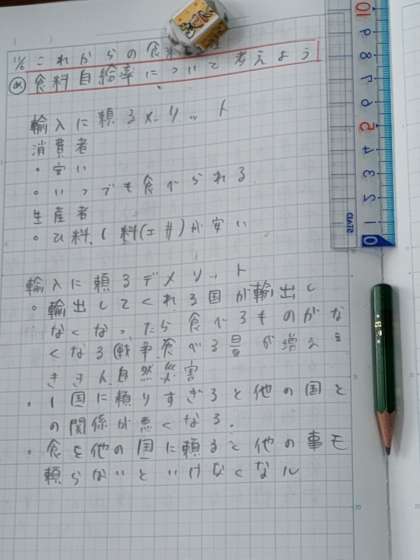 1/6 これからの食料
め 食料自給率について考えよう
輸入に頼るメリット
消費者
・安い
・いつでも食べられる
生産者
・ひ料、し料(エサ)が安い
輸入に頼るデメリット
・輸出してくれる国が輸出し
なくなったら食べるものがな
くなる戦争、食べる量が増える
ききん、自然災害
・1国に頼りすぎると他の国と
の関係が悪くなる。
・食を他の国に頼ると他の事も
頼らないといけなくなる
10 9 8 7 6 5 4 3 2 1 0